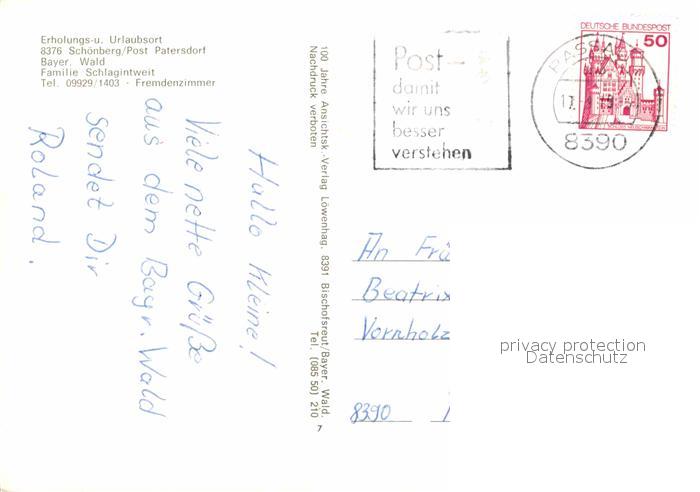 Erholungs-u. Urlaubsort
8376 Schönberg/Post Patersdorf
Bayer. Wald
Familie Schlagintweit
Tel. 09929/1403 · Fremdenzimmer
Hallo Kleine!
Viele nette Grüße
aus dem Bayr. Wald
sendet Dir
Roland.
100 Jahre Ansichtsk.-Verlag Löwenhag, 8391 Bischofsreut/Bayer. Wald.
Nachdruck verboten
Tel. (085 50) 210
7
Post-
damit
wir uns
besser
verstehen
PASSAU
8390
DEUTSCHE BUNDESPOST
50
An Frä
Beatrix
Vornholz
8390
privacy protection
Datenschutz